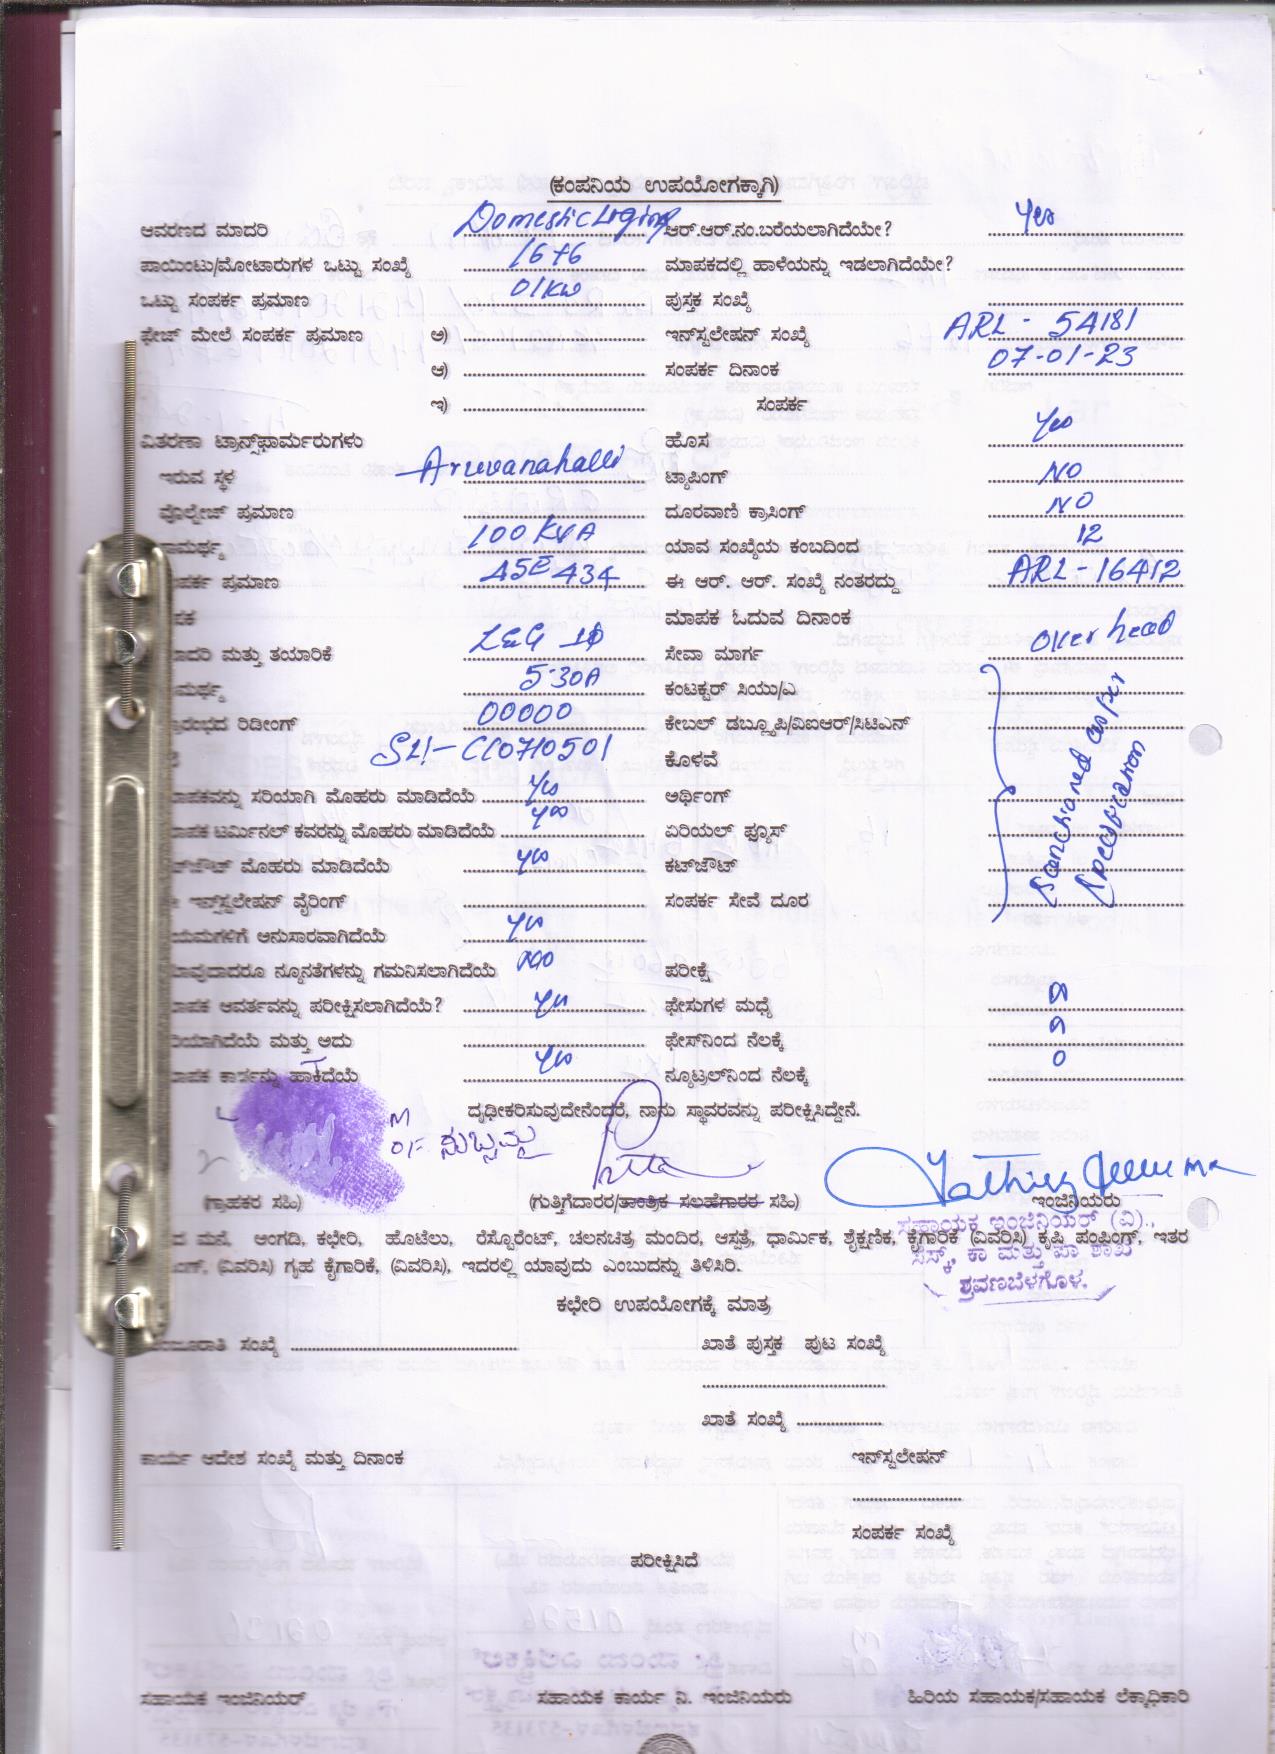 (ಕಂಪನಿಯ ಉಪಯೋಗಕ್ಕಾಗಿ)
ಆವರಣದ ಮಾದರಿ Domestic Liging ಆರ್.ಆರ್.ನಂ.ಬರೆಯಲಾಗಿದೆಯೇ? Yes
ಪಾಯಿಂಟು/ಮೋಟಾರುಗಳ ಒಟ್ಟು ಸಂಖ್ಯೆ 16+6 ಮಾಪಕದಲ್ಲಿ ಹಾಳೆಯನ್ನು ಇಡಲಾಗಿದೆಯೇ?
ಒಟ್ಟು ಸಂಪರ್ಕ ಪ್ರಮಾಣ 01KW ಪುಸ್ತಕ ಸಂಖ್ಯೆ
ಫೇಜ್ ಮೇಲೆ ಸಂಪರ್ಕ ಪ್ರಮಾಣ ಅ) ಇನ್‌ಸ್ಟಲೇಷನ್ ಸಂಖ್ಯೆ ARL - 54181
ಆ) ಸಂಪರ್ಕ ದಿನಾಂಕ 07-01-23
ಇ) ಸಂಪರ್ಕ
ವಿತರಣಾ ಟ್ರಾನ್ಸ್‌ಫಾರ್ಮರುಗಳು ಹೊಸ Yes
ಇರುವ ಸ್ಥಳ Aruvanahalli ಟ್ಯಾಪಿಂಗ್ NO
ವೊಲ್ಟೇಜ್ ಪ್ರಮಾಣ ದೂರವಾಣಿ ಕ್ರಾಸಿಂಗ್ NO
ಾಮರ್ಥ್ಯ 100 KVA ಯಾವ ಸಂಖ್ಯೆಯ ಕಂಬದಿಂದ 12
ಪರ್ಕ ಪ್ರಮಾಣ ಈ ಆರ್. ಆರ್. ಸಂಖ್ಯೆ ನಂತರದ್ದು ARL - 16412
ಪಕ ಮಾಪಕ ಓದುವ ದಿನಾಂಕ
ಾದರಿ ಮತ್ತು ತಯಾರಿಕೆ L&G 1Φ ಸೇವಾ ಮಾರ್ಗ Over head
ಾಮರ್ಥ್ಯ 5-30A ಕಂಟಕ್ಟರ್ ಸಿಯು/ಎ
ರಂಭದ ರಿಡೀಂಗ್ 00000 ಕೇಬಲ್ ಡಬ್ಲ್ಯೂಪಿ/ವಿಐಆರ್/ಸಿಟಿಎನ್
SLI-CC0710501 ಕೊಳವೆ
ಾಪಕವನ್ನು ಸರಿಯಾಗಿ ಮೊಹರು ಮಾಡಿದೆಯೆ Yes ಅರ್ಥಿಂಗ್
ಾಪಕ ಟರ್ಮಿನಲ್ ಕವರನ್ನು ಮೊಹರು ಮಾಡಿದೆಯೆ Yes ಏರಿಯಲ್ ಫ್ಯೂಸ್
ಟ್‌ಔಟ್ ಮೊಹರು ಮಾಡಿದೆಯೆ Yes ಕಟ್‌ಔಟ್
ಇನ್ಸ್‌ಟಲೇಷನ್ ವೈರಿಂಗ್ ಸಂಪರ್ಕ ಸೇವೆ ದೂರ
Sanctioned as per
ಯಮಗಳಿಗೆ ಅನುಸಾರವಾಗಿದೆಯೆ Yes
ಾವುದಾದರೂ ನ್ಯೂನತೆಗಳನ್ನು ಗಮನಿಸಲಾಗಿದೆಯೆ ಪರೀಕ್ಷೆ
ಾಪಕ ಆವರ್ತವನ್ನು ಪರೀಕ್ಷಿಸಲಾಗಿದೆಯೆ? Yes ಫೇಸುಗಳ ಮಧ್ಯೆ
ರಿಯಾಗಿದೆಯೆ ಮತ್ತು ಅದು ಫೇಸ್‌ನಿಂದ ನೆಲಕ್ಕೆ
ಾಪಕ ಕಾರ್ಡನ್ನು ಹಾಕಿದೆಯೆ Yes ನ್ಯೂಟ್ರಲ್‌ನಿಂದ ನೆಲಕ್ಕೆ 0
ದೃಢೀಕರಿಸುವುದೇನೆಂದರೆ, ನಾನು ಸ್ಥಾವರವನ್ನು ಪರೀಕ್ಷಿಸಿದ್ದೇನೆ.
(ಗ್ರಾಹಕರ ಸಹಿ) (ಗುತ್ತಿಗೆದಾರರ/ತಾಂತ್ರಿಕ ಸಲಹೆಗಾರರ ಸಹಿ) ಇಂಜಿನಿಯರು
ಸಹಾಯಕ ಇಂಜಿನಿಯರ್ (ವಿ).,
ದ ಮನೆ, ಅಂಗಡಿ, ಕಛೇರಿ, ಹೊಟೆಲು, ರೆಸ್ಟೋರೆಂಟ್, ಚಲನಚಿತ್ರ ಮಂದಿರ, ಆಸ್ಪತ್ರೆ, ಧಾರ್ಮಿಕ, ಶೈಕ್ಷಣಿಕ, ಕೈಗಾರಿಕೆ (ವಿವರಿಸಿ) ಕೃಷಿ ಪಂಪಿಂಗ್, ಇತರ
ಂಗ್, (ವಿವರಿಸಿ) ಗೃಹ ಕೈಗಾರಿಕೆ, (ವಿವರಿಸಿ), ಇದರಲ್ಲಿ ಯಾವುದು ಎಂಬುದನ್ನು ತಿಳಿಸಿರಿ.
ಸೆಸ್ಕ್, ಕಾ ಮತ್ತು ಪಾ ಶಾಖೆ
ಶ್ರವಣಬೆಳಗೊಳ.
ಕಛೇರಿ ಉಪಯೋಗಕ್ಕೆ ಮಾತ್ರ
ಮಂಜೂರಾತಿ ಸಂಖ್ಯೆ ಖಾತೆ ಪುಸ್ತಕ ಪುಟ ಸಂಖ್ಯೆ
ಖಾತೆ ಸಂಖ್ಯೆ
ಕಾರ್ಯ ಆದೇಶ ಸಂಖ್ಯೆ ಮತ್ತು ದಿನಾಂಕ ಇನ್‌ಸ್ಟಲೇಷನ್
ಸಂಪರ್ಕ ಸಂಖ್ಯೆ
ಪರೀಕ್ಷಿಸಿದೆ
ಸಹಾಯಕ ಇಂಜಿನಿಯರ್ ಸಹಾಯಕ ಕಾರ್ಯ ನಿ. ಇಂಜಿನಿಯರು ಹಿರಿಯ ಸಹಾಯಕ/ಸಹಾಯಕ ಲೆಕ್ಕಾಧಿಕಾರಿ